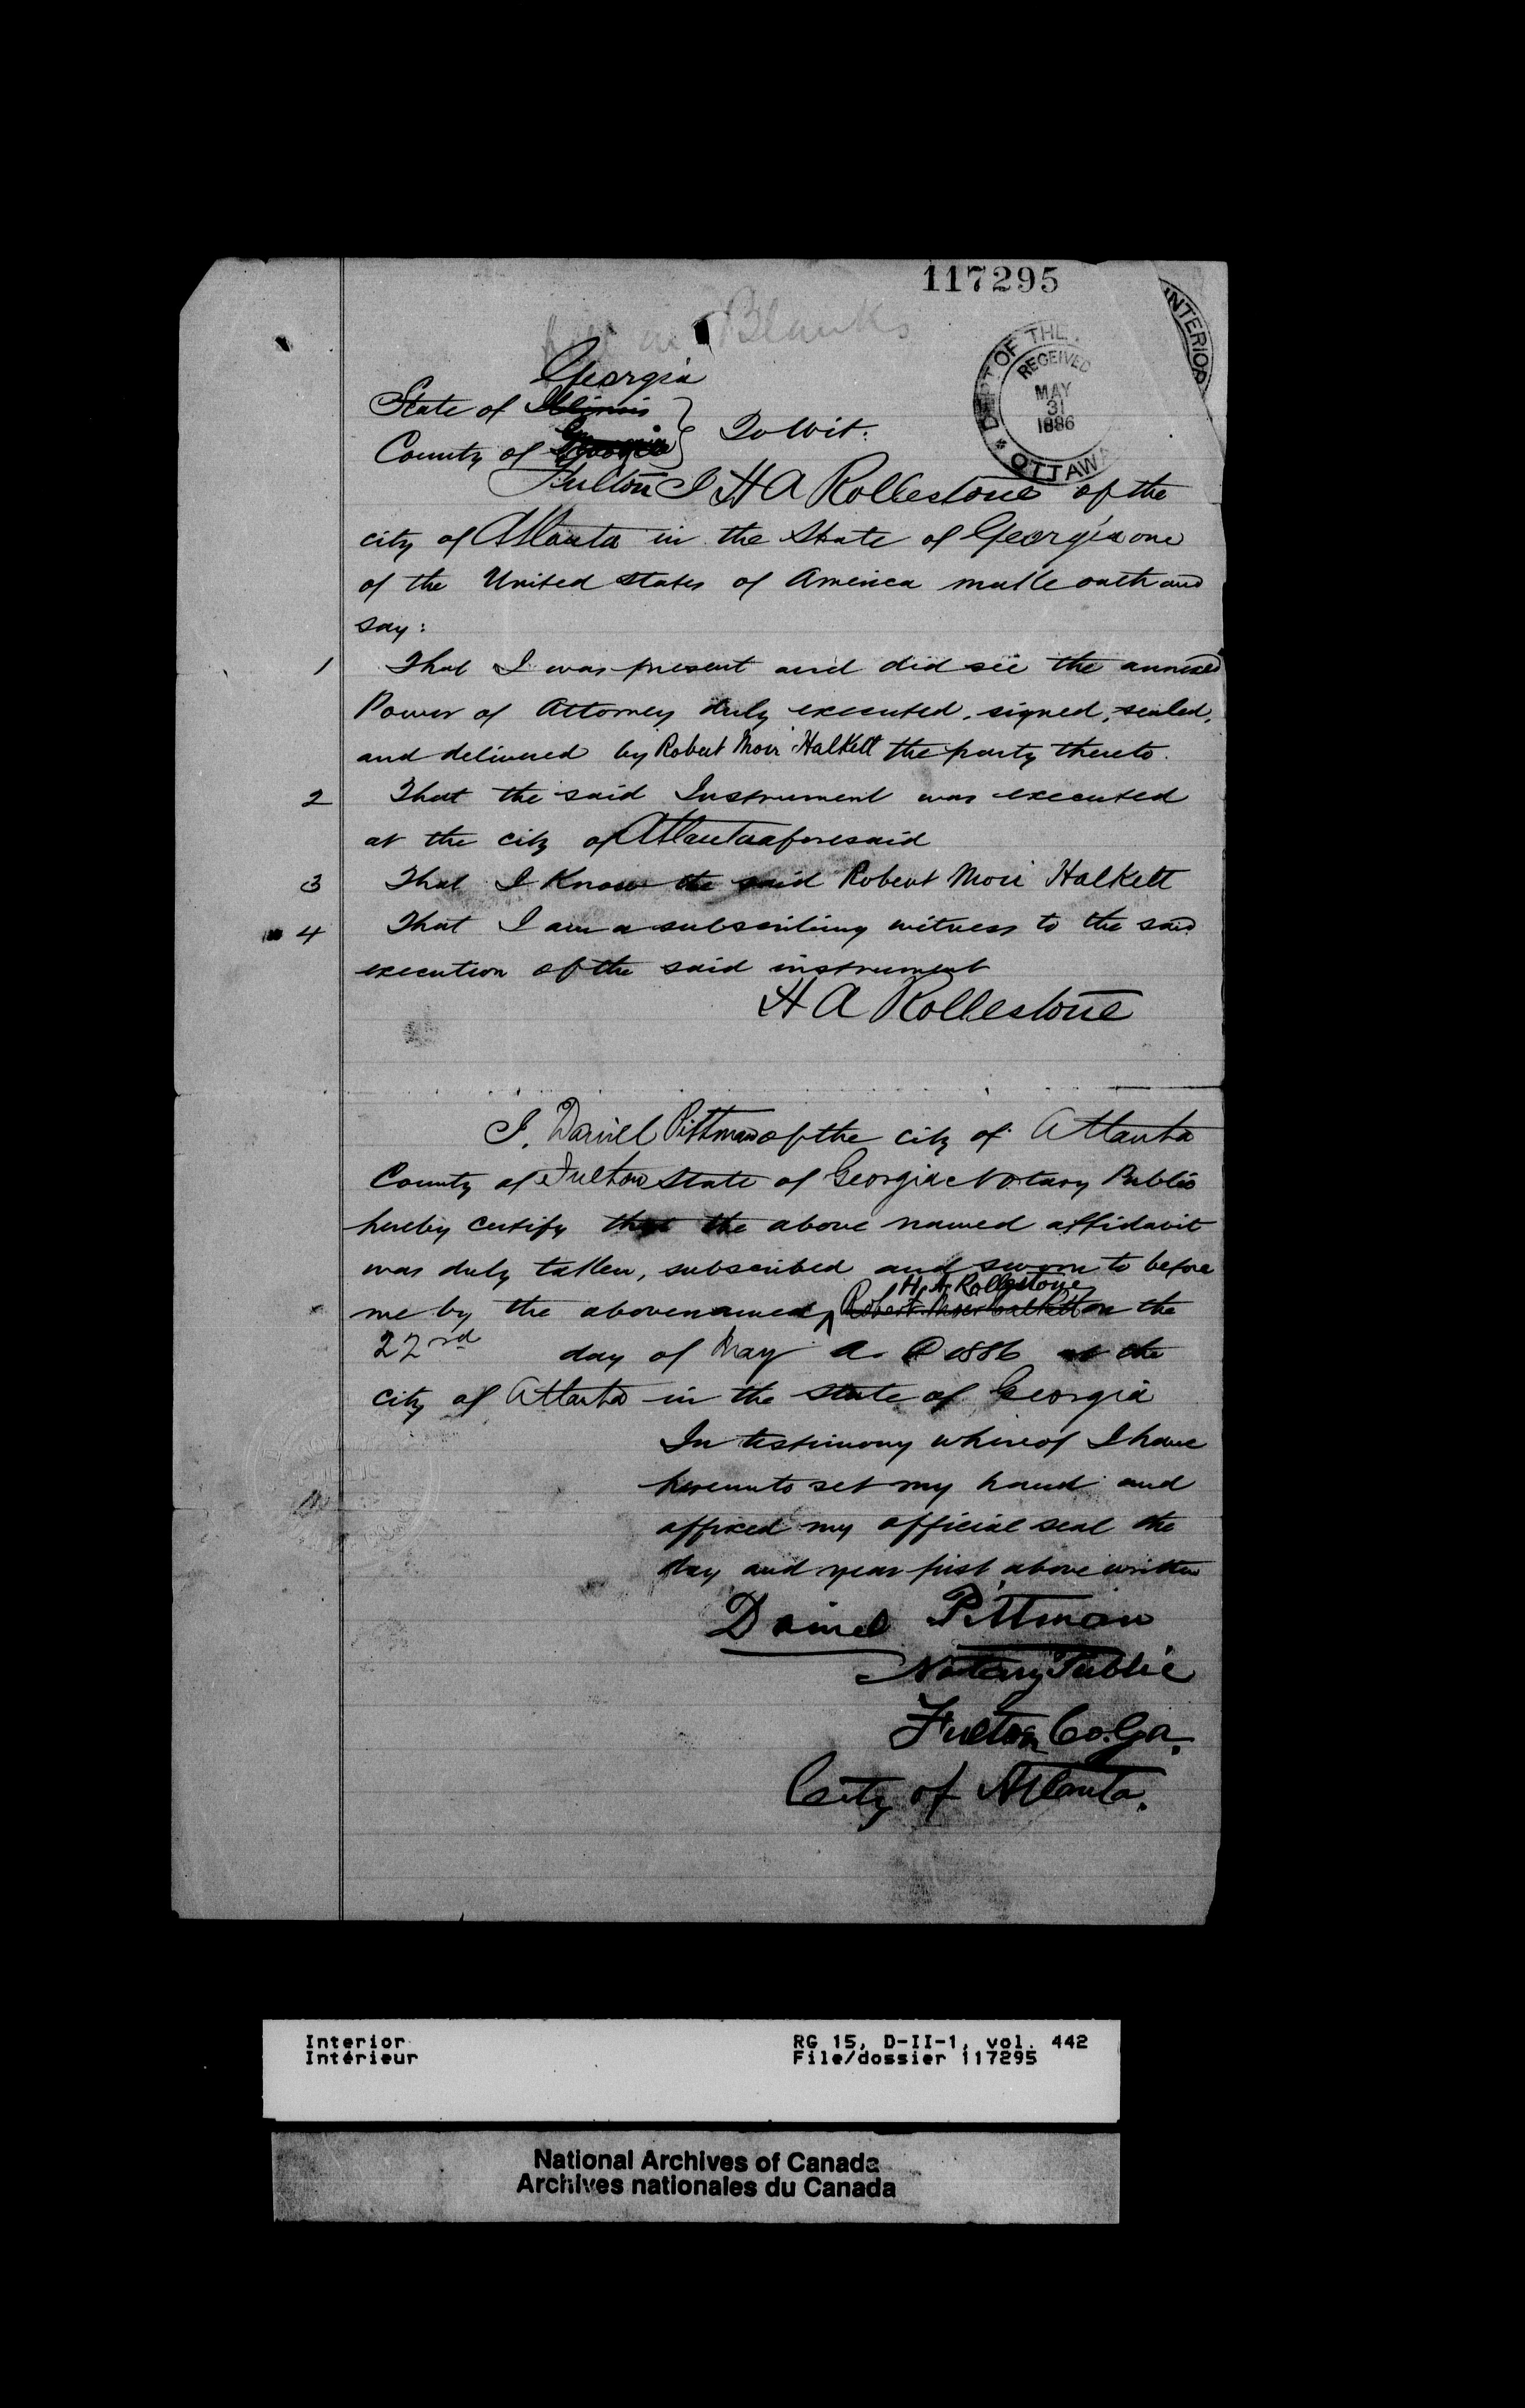 117295
fill in Blanks
INTERIOR
DEPT OF THE
RECEIVED
MAY
31
1886
OTTAWA
Georgia
State of Illinois
County of To Wit:
Fulton I H A Rollestone of the
city of Atlanta in the State of Georgia one
of the United States of America make oath and
say:
1 That I was present and did see the annexed
Power of Attorney duly executed, signed, sealed,
and delivered by Robert Moir Halkett the party thereto.
2 That the said Instrument was executed
at the city of Atlanta aforesaid
3 That I Know the said Robert Moir Halkett
4 That I am a subscribing witness to the said
execution of the said instrument
H A Rollestone
I, Daniel Pittman of the city of Atlanta
County of Fulton State of Georgia Notary Public
hereby certify that the above named affidavit
was duly taken, subscribed and sworn to before
H. A. Rollestone
me by the abovenamed Robert Moir Halkett on the
22nd day of May A. D 1886 at the
city of Atlanta in the State of Georgia
In testimony whereof I have
hereunto set my hand and
affixed my official seal the
day and year first above written
Daniel Pittman
Notary Public
Fulton Co. Ga.
City of Atlanta.
Interior RG 15, D-II-1, vol. 442
Intérieur File/dossier 117295
National Archives of Canada
Archives nationales du Canada